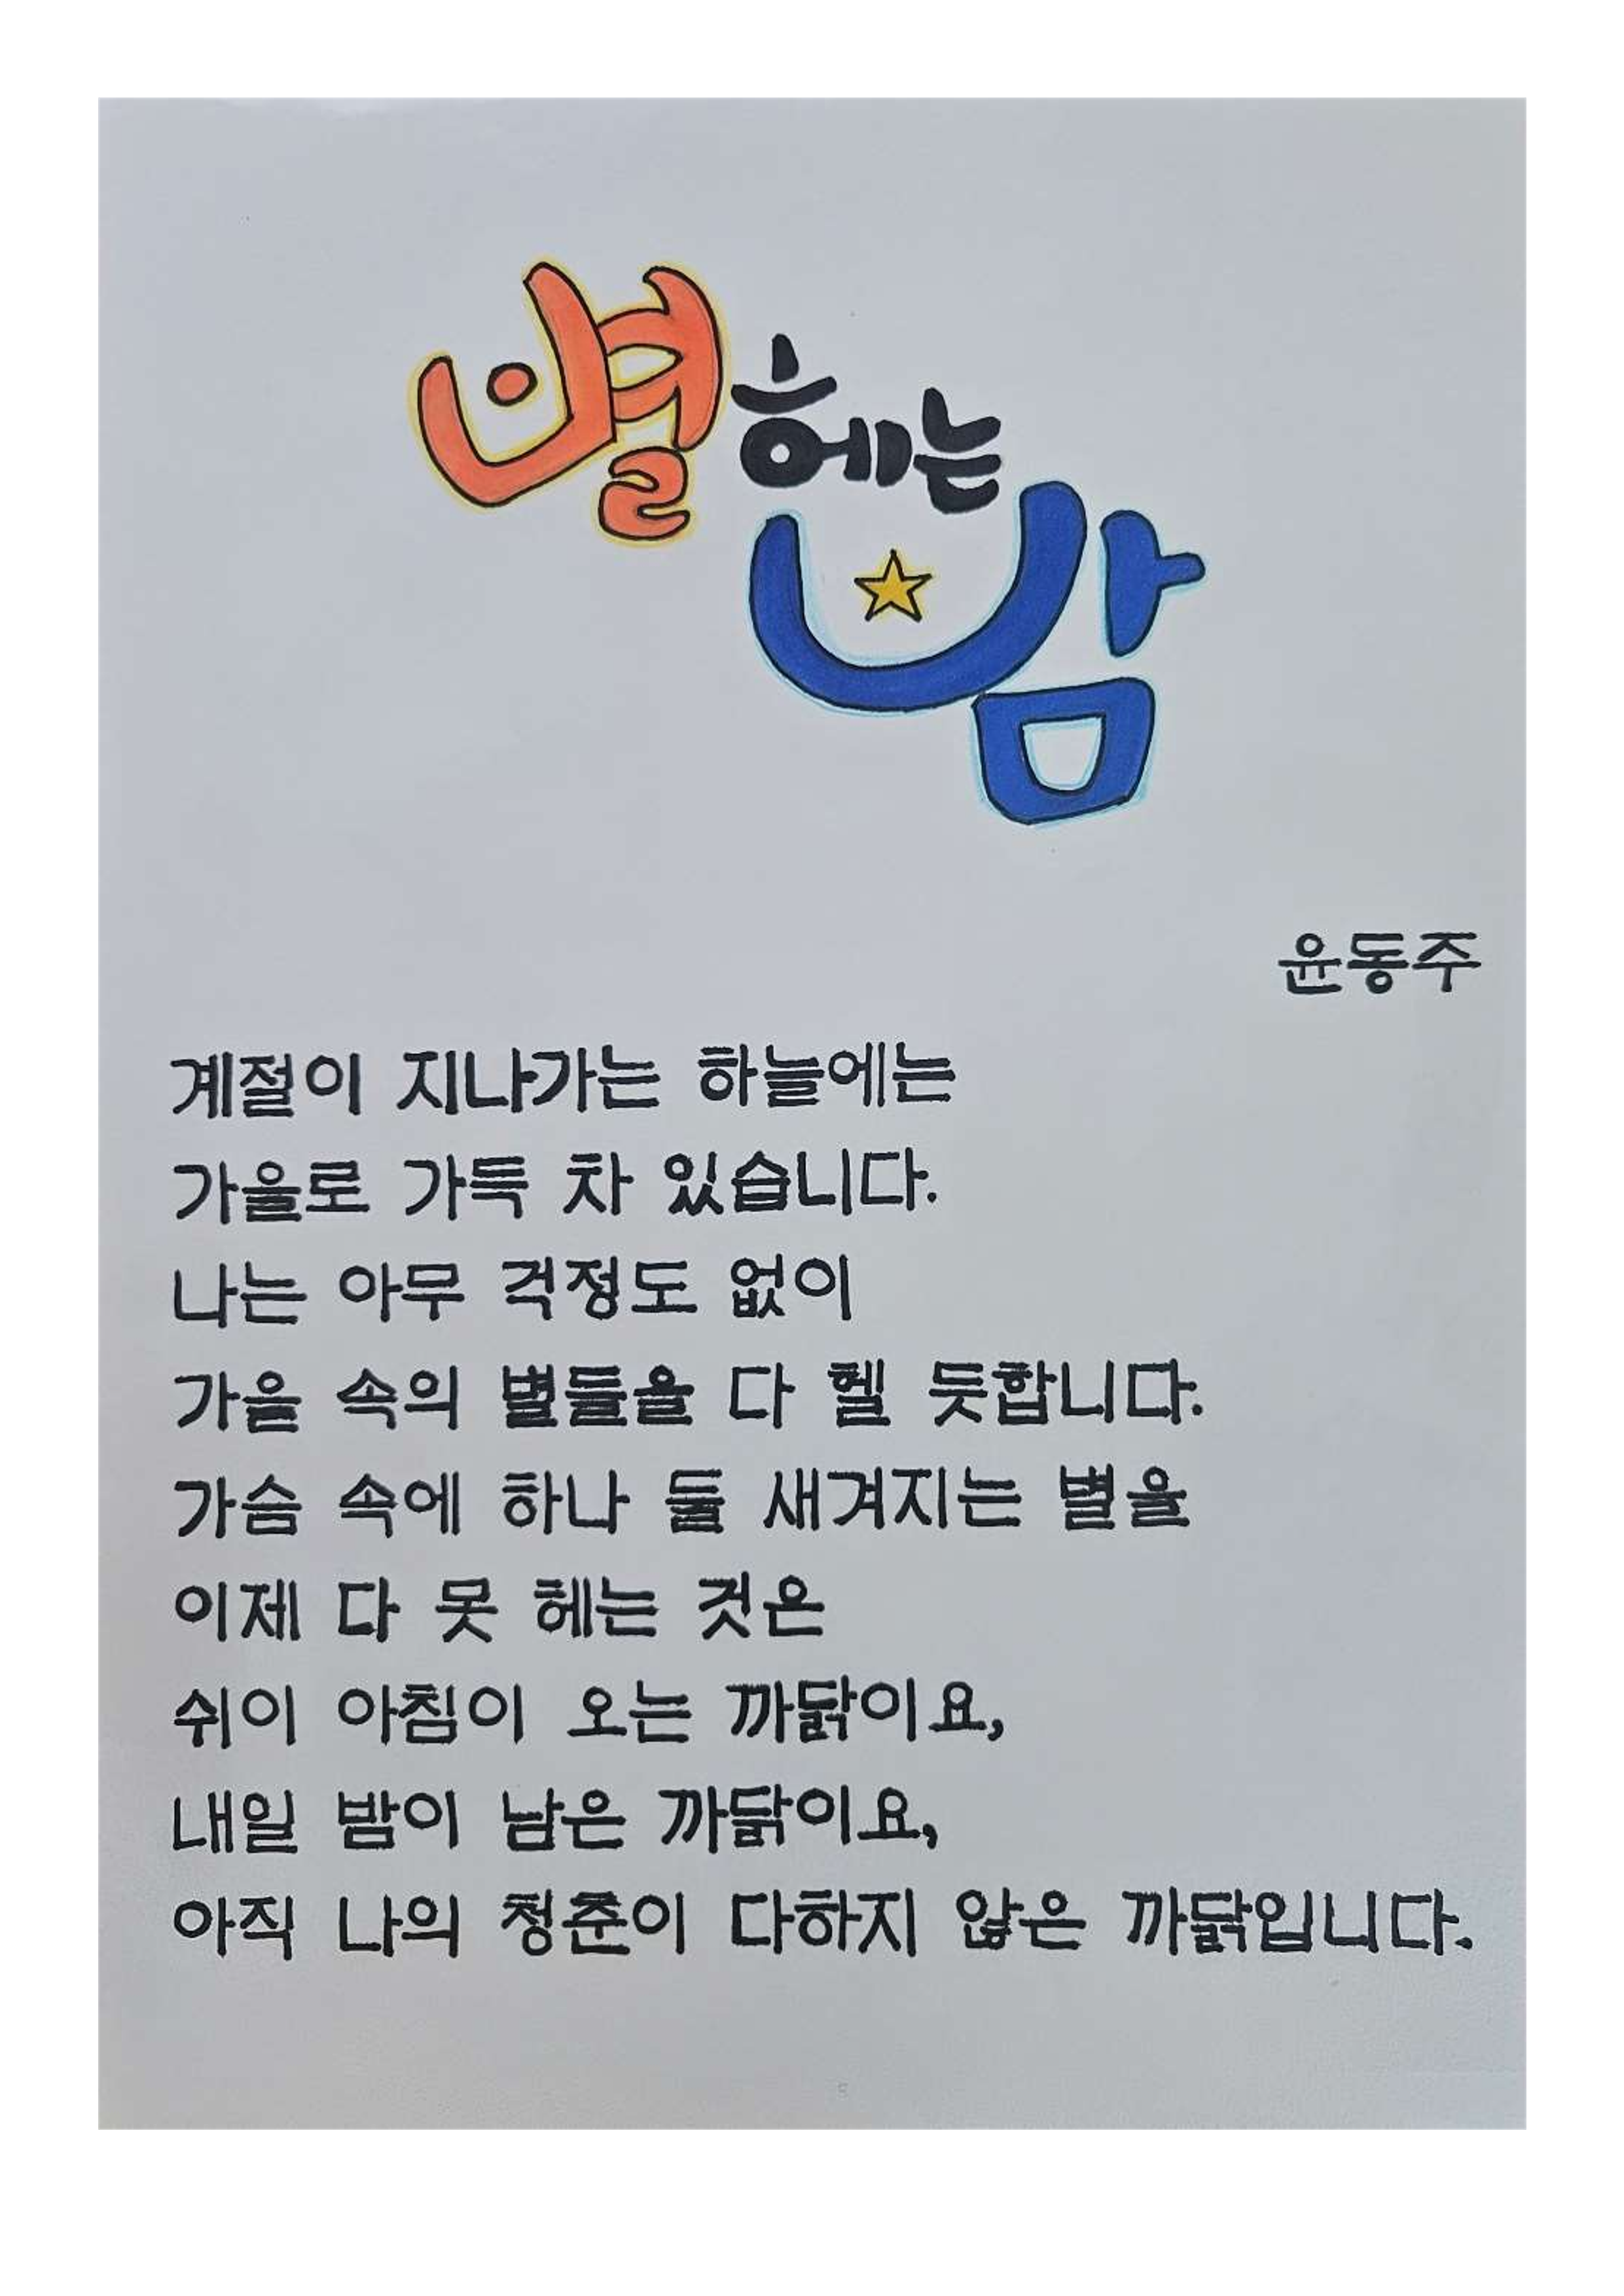 별 헤는 밤
윤동주
계절이 지나가는 하늘에는
가을로 가득 차 있습니다.
나는 아무 걱정도 없이
가을 속의 별들을 다 헬 듯합니다.
가슴 속에 하나 둘 새겨지는 별을
이제 다 못 헤는 것은
쉬이 아침이 오는 까닭이요,
내일 밤이 남은 까닭이요,
아직 나의 청춘이 다하지 않은 까닭입니다.